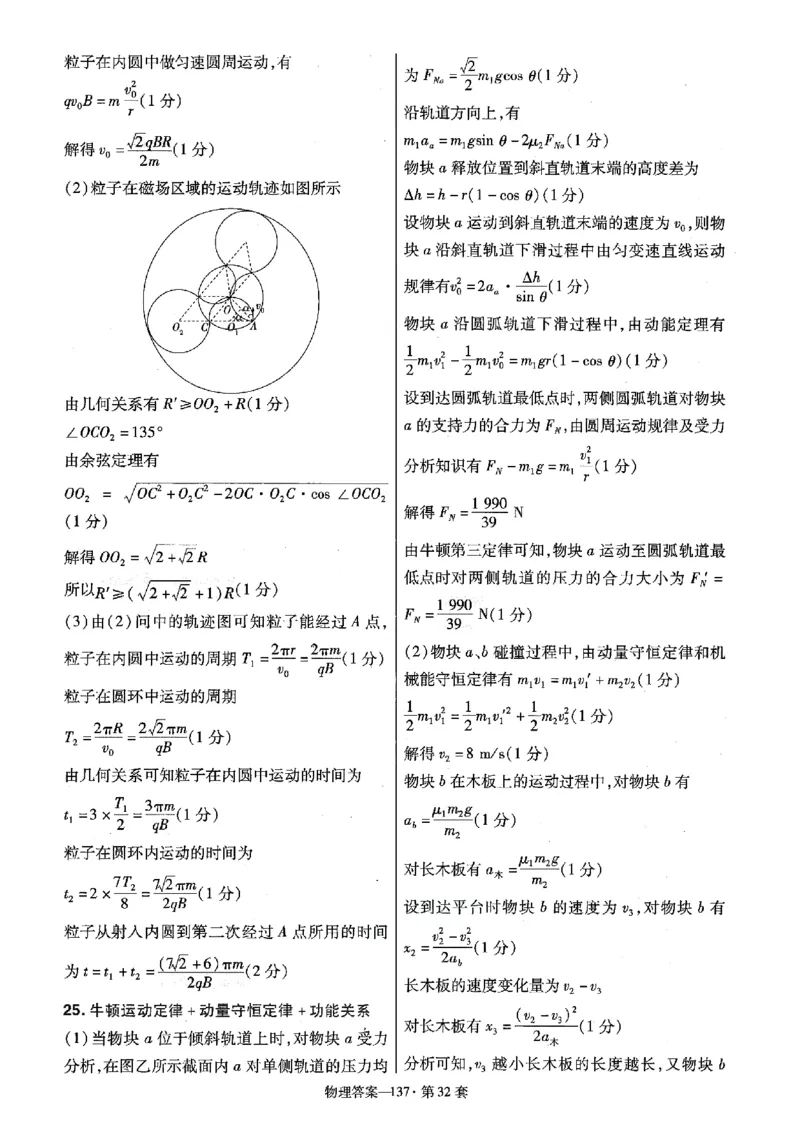 粒子在内圆中做匀速圆周运动,有
qv₀B=m v₀²/r (1分)
解得v₀=√2qBR/2m (1分)
(2)粒子在磁场区域的运动轨迹如图所示
O α v₀
O₂ C O₁ A
由几何关系有R'≥OO₂+R(1分)
∠OCO₂=135°
由余弦定理有
OO₂ = √(OC²+O₂C²-2OC·O₂C·cos ∠OCO₂)
(1分)
解得OO₂=√(2+√2)R
所以R'≥(√(2+√2)+1)R(1分)
(3)由(2)问中的轨迹图可知粒子能经过A点,
粒子在内圆中运动的周期T₁=2πr/v₀=2πm/qB(1分)
粒子在圆环中运动的周期
T₂=2πR/v₀=2√2πm/qB(1分)
由几何关系可知粒子在内圆中运动的时间为
t₁=3×T₁/2=3πm/qB(1分)
粒子在圆环内运动的时间为
t₂=2×7T₂/8=7√2πm/2qB(1分)
粒子从射入内圆到第二次经过A点所用的时间
为t=t₁+t₂=(7√2+6)πm/2qB(2分)
25. 牛顿运动定律+动量守恒定律+功能关系
(1)当物块a位于倾斜轨道上时,对物块a受力
分析,在图乙所示截面内a对单侧轨道的压力均
为F_Na=√2/2 m₁gcos θ(1分)
沿轨道方向上,有
m₁aₐ=m₁gsin θ-2μ₂F_Na(1分)
物块a释放位置到斜直轨道末端的高度差为
Δh=h-r(1-cos θ)(1分)
设物块a运动到斜直轨道末端的速度为v₀,则物
块a沿斜直轨道下滑过程中由匀变速直线运动
规律有v₀²=2aₐ·Δh/sin θ(1分)
物块a沿圆弧轨道下滑过程中,由动能定理有
1/2 m₁v₁²-1/2 m₁v₀²=m₁gr(1-cos θ)(1分)
设到达圆弧轨道最低点时,两侧圆弧轨道对物块
a的支持力的合力为F_N,由圆周运动规律及受力
分析知识有F_N-m₁g=m₁ v₁²/r(1分)
解得F_N=1 990/39 N
由牛顿第三定律可知,物块a运动至圆弧轨道最
低点时对两侧轨道的压力的合力大小为F_N'=
F_N=1 990/39 N(1分)
(2)物块a、b碰撞过程中,由动量守恒定律和机
械能守恒定律有m₁v₁=m₁v₁'+m₂v₂(1分)
1/2 m₁v₁²=1/2 m₁v₁'²+1/2 m₂v₂²(1分)
解得v₂=8 m/s(1分)
物块b在木板上的运动过程中,对物块b有
a_b=μ₁m₂g/m₂(1分)
对长木板有a木=μ₁m₂g/m₂(1分)
设到达平台时物块b的速度为v₃,对物块b有
x₂=(v₂²-v₃²)/2a_b(1分)
长木板的速度变化量为v₂-v₃
对长木板有x₃=(v₂-v₃)²/2a木(1分)
分析可知,v₃越小长木板的长度越长,又物块b
物理答案—137·第32套